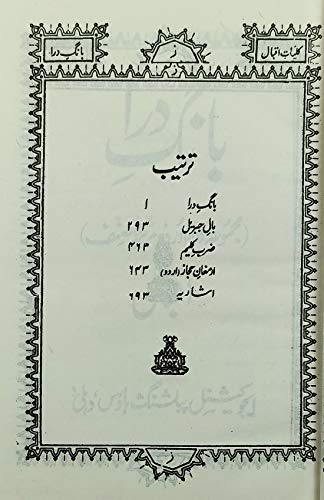 کلیات اقبال
ز
بانگ درا
ترتیب
بانگ درا ۱
بال جبریل ۲۹۳
ضرب کلیم ۴۶۳
ارمغان حجاز (اردو) ۶۴۳
اشاریہ ۶۹۳
ز